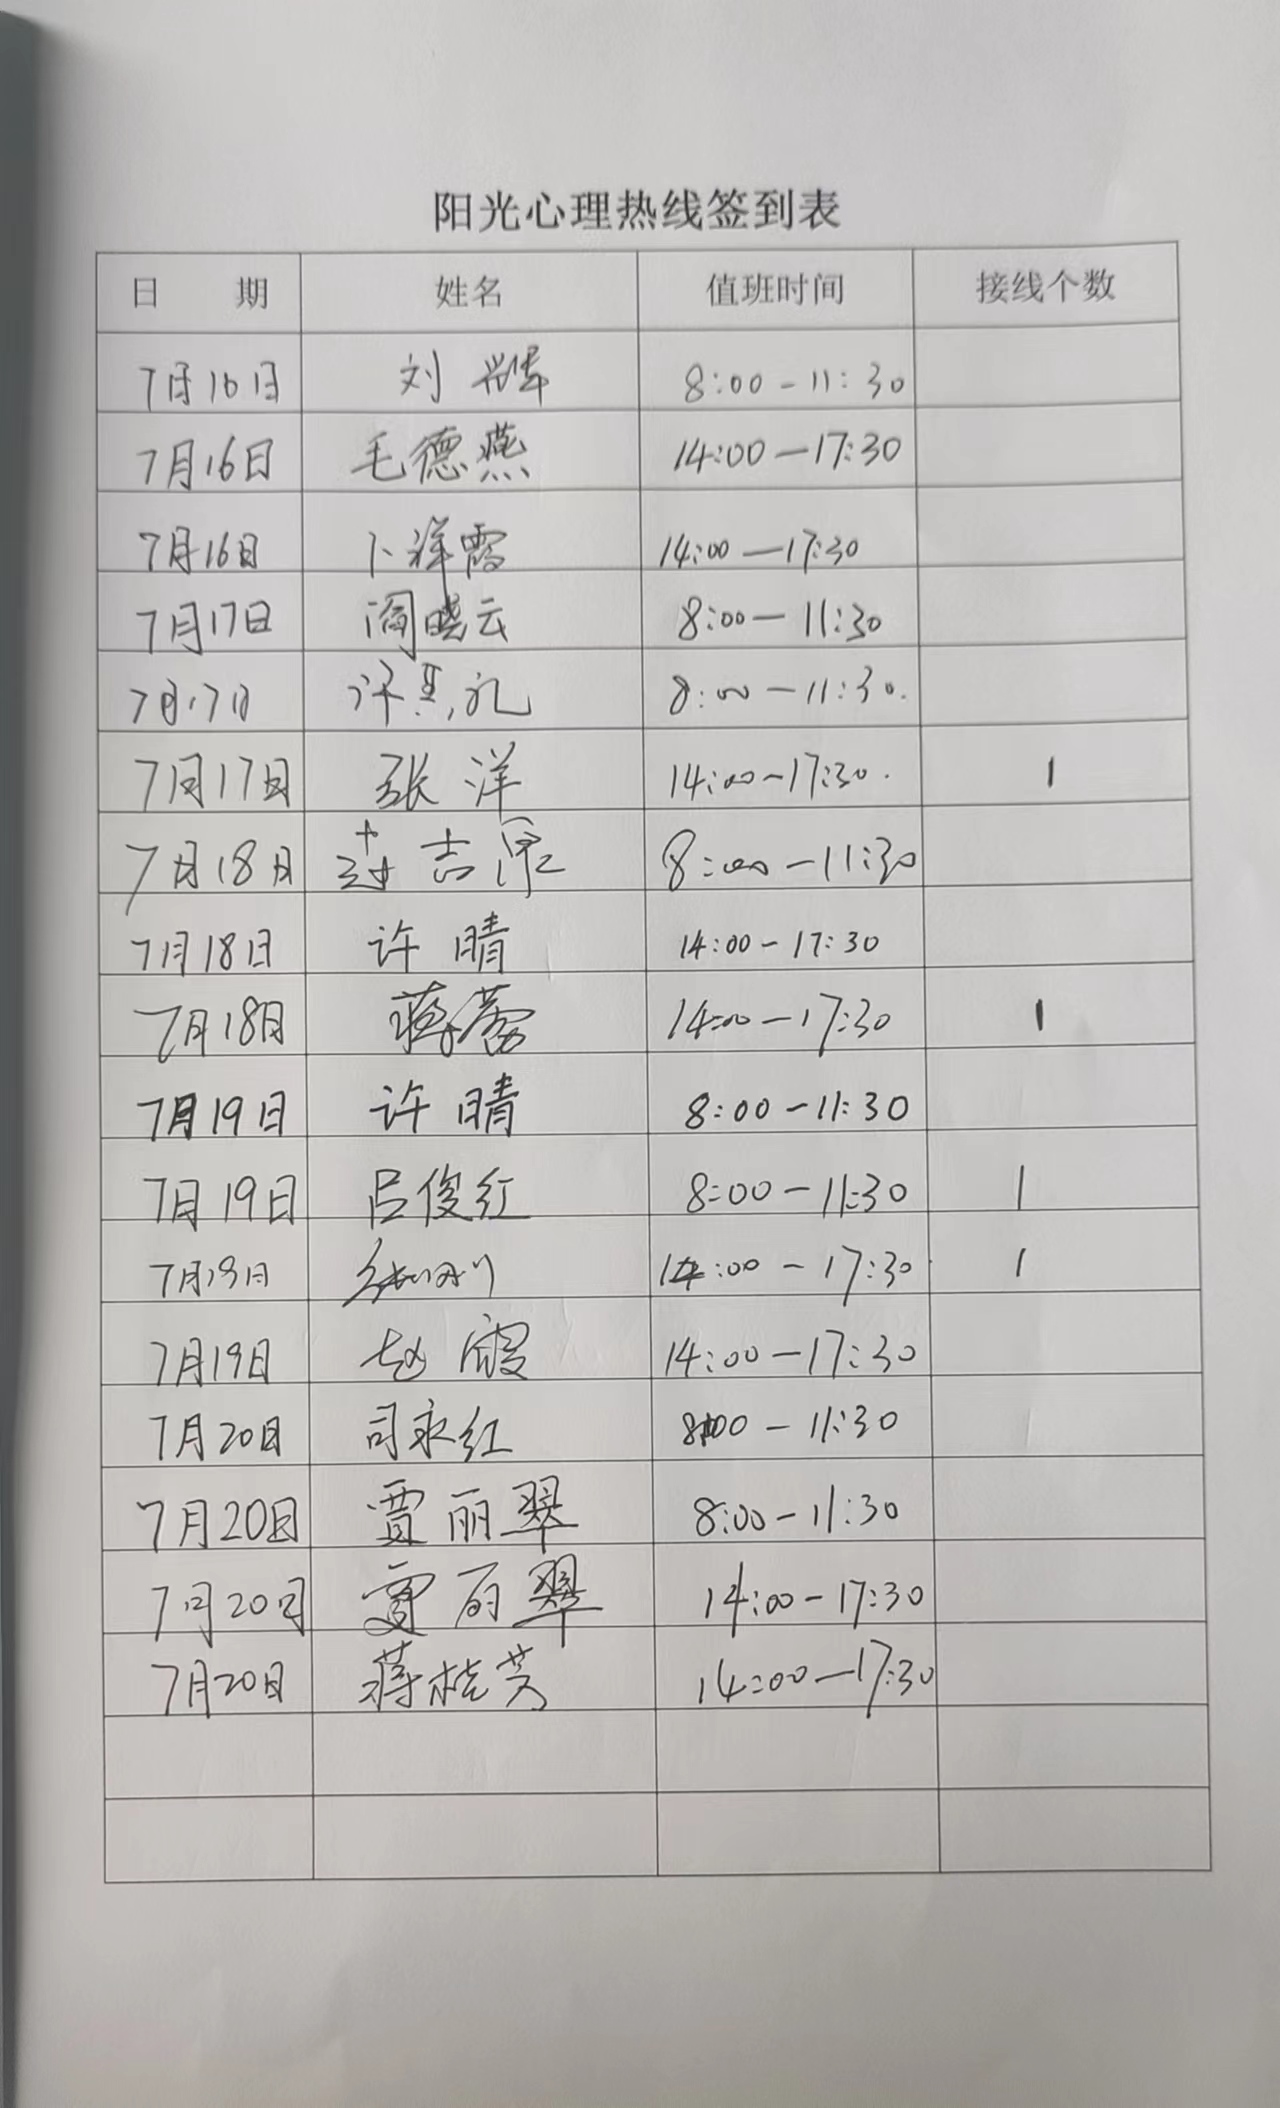 阳光心理热线签到表
日 期 姓名 值班时间 接线个数
7月16日 刘 8:00-11:30
7月16日 毛德燕 14:00-17:30
7月16日 卜祥霞 14:00-17:30
7月17日 阎晓云 8:00-11:30
7月17日 许 礼 8:00-11:30.
7月17日 张洋 14:00-17:30. 1
7月18日 吉 8:00-11:30
7月18日 许晴 14:00-17:30
7月18日 蒋 14:00-17:30 1
7月19日 许晴 8:00-11:30
7月19日 吕俊红 8:00-11:30 1
7月19日 14:00-17:30 1
7月19日 赵霞 14:00-17:30
7月20日 司永红 8:00-11:30
7月20日 贾丽翠 8:00-11:30
7月20日 贾丽翠 14:00-17:30
7月20日 蒋桂芳 14:00-17:30